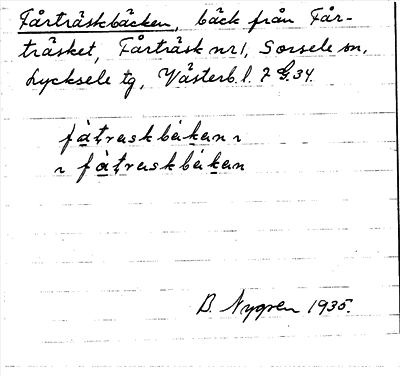 Fårträskbäcken, bäck från Får-
träsket, Fårträsk nr 1, Sorsele sn,
Lycksele tg, Västerb. l. J G. 34.
fàt̩raskbákan ı
ı fàt̩raskbákan
B. Nygren 1935.